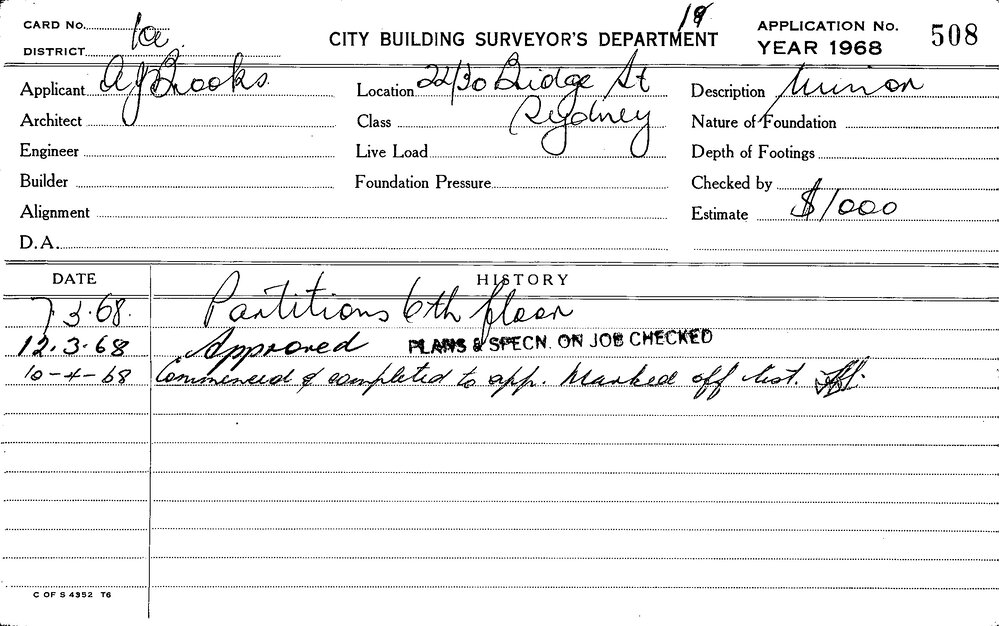 CARD No. 1a
DISTRICT
CITY BUILDING SURVEYOR'S DEPARTMENT
18
APPLICATION No. 508
YEAR 1968
Applicant A J Brooks
Location 22/30 Bridge St
Sydney
Description Minor
Architect
Class
Nature of Foundation
Engineer
Live Load
Depth of Footings
Builder
Foundation Pressure
Checked by
Alignment
Estimate $1000
D.A.
DATE HISTORY
7.3.68. Partitions 6th floor
12.3.68 Approved PLANS & SPECN. ON JOB CHECKED
10-4-68 Commenced & completed to app. Marked off list.
C OF S 4352 T6